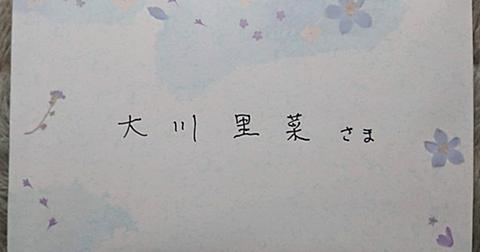 大川里菜さま